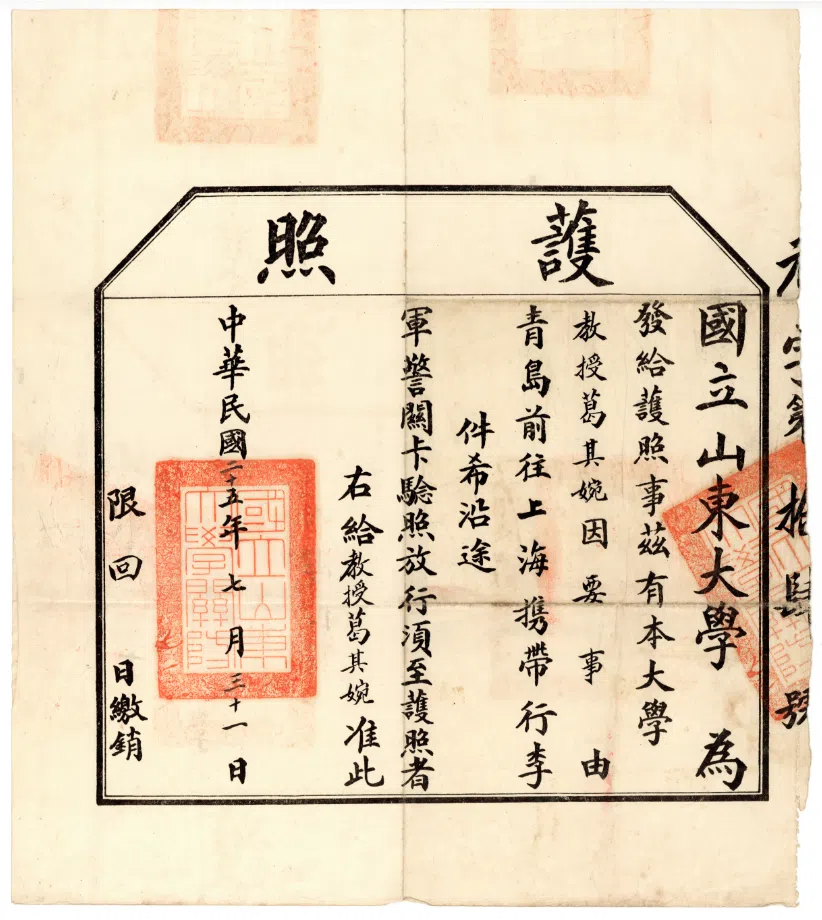 護照
字第拾肆號
國立山東大學 為
發給護照事茲有本大學
教授葛其婉因要事由
青島前往上海攜帶行李
件希沿途
軍警關卡驗照放行須至護照者
右給教授葛其婉准此
中華民國二十五年七月三十一日
國立山東大學關防
限回 日繳銷